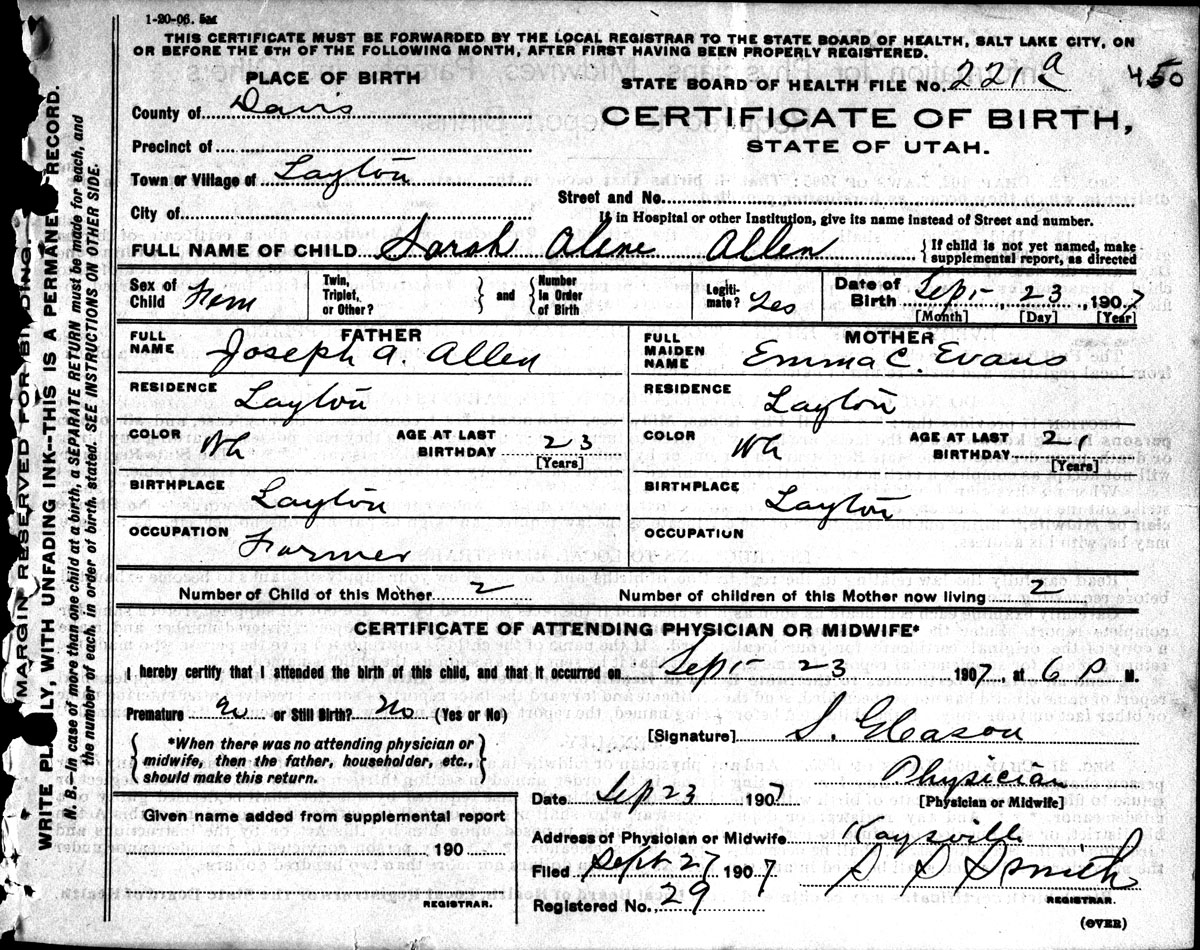 1-20-06. 5M
THIS CERTIFICATE MUST BE FORWARDED BY THE LOCAL REGISTRAR TO THE STATE BOARD OF HEALTH, SALT LAKE CITY, ON
OR BEFORE THE 5TH OF THE FOLLOWING MONTH, AFTER FIRST HAVING BEEN PROPERLY REGISTERED.
PLACE OF BIRTH
STATE BOARD OF HEALTH FILE No. 221 a 450
County of Davis
CERTIFICATE OF BIRTH,
Precinct of
STATE OF UTAH.
Town or Village of Layton
Street and No.
City of
If in Hospital or other Institution, give its name instead of Street and number.
FULL NAME OF CHILD Sarah Alene Allen { If child is not yet named, make
supplemental report, as directed
Sex of Child Fem Twin, Triplet, or Other? } and { Number in Order of Birth Legitimate? Yes Date of Birth Sept- 23, 1907
[Month] [Day] [Year]
FATHER MOTHER
FULL NAME Joseph A. Allen FULL MAIDEN NAME Emma C. Evans
RESIDENCE Layton RESIDENCE Layton
COLOR Wh AGE AT LAST BIRTHDAY 23 [Years] COLOR Wh AGE AT LAST BIRTHDAY 21 [Years]
BIRTHPLACE Layton BIRTHPLACE Layton
OCCUPATION Farmer OCCUPATION
Number of Child of this Mother 2 Number of children of this Mother now living 2
CERTIFICATE OF ATTENDING PHYSICIAN OR MIDWIFE*
I hereby certify that I attended the birth of this child, and that it occurred on Sept- 23 1907, at 6 P M.
Premature no or Still Birth? no (Yes or No)
[Signature] S. Gleason
{ *When there was no attending physician or
midwife, then the father, householder, etc.,
should make this return. }
Physician
[Physician or Midwife]
Date Sep 23 1907
Given name added from supplemental report
Address of Physician or Midwife Kaysville
190
Filed Sept. 27 1907 S S Smith
REGISTRAR.
REGISTRAR.
Registered No. 29
(OVER)
MARGIN RESERVED FOR BINDING
WRITE PLAINLY, WITH UNFADING INK--THIS IS A PERMANENT RECORD.
N. B.--In case of more than one child at a birth, a SEPARATE RETURN must be made for each, and
the number of each, in order of birth, stated. SEE INSTRUCTIONS ON OTHER SIDE.